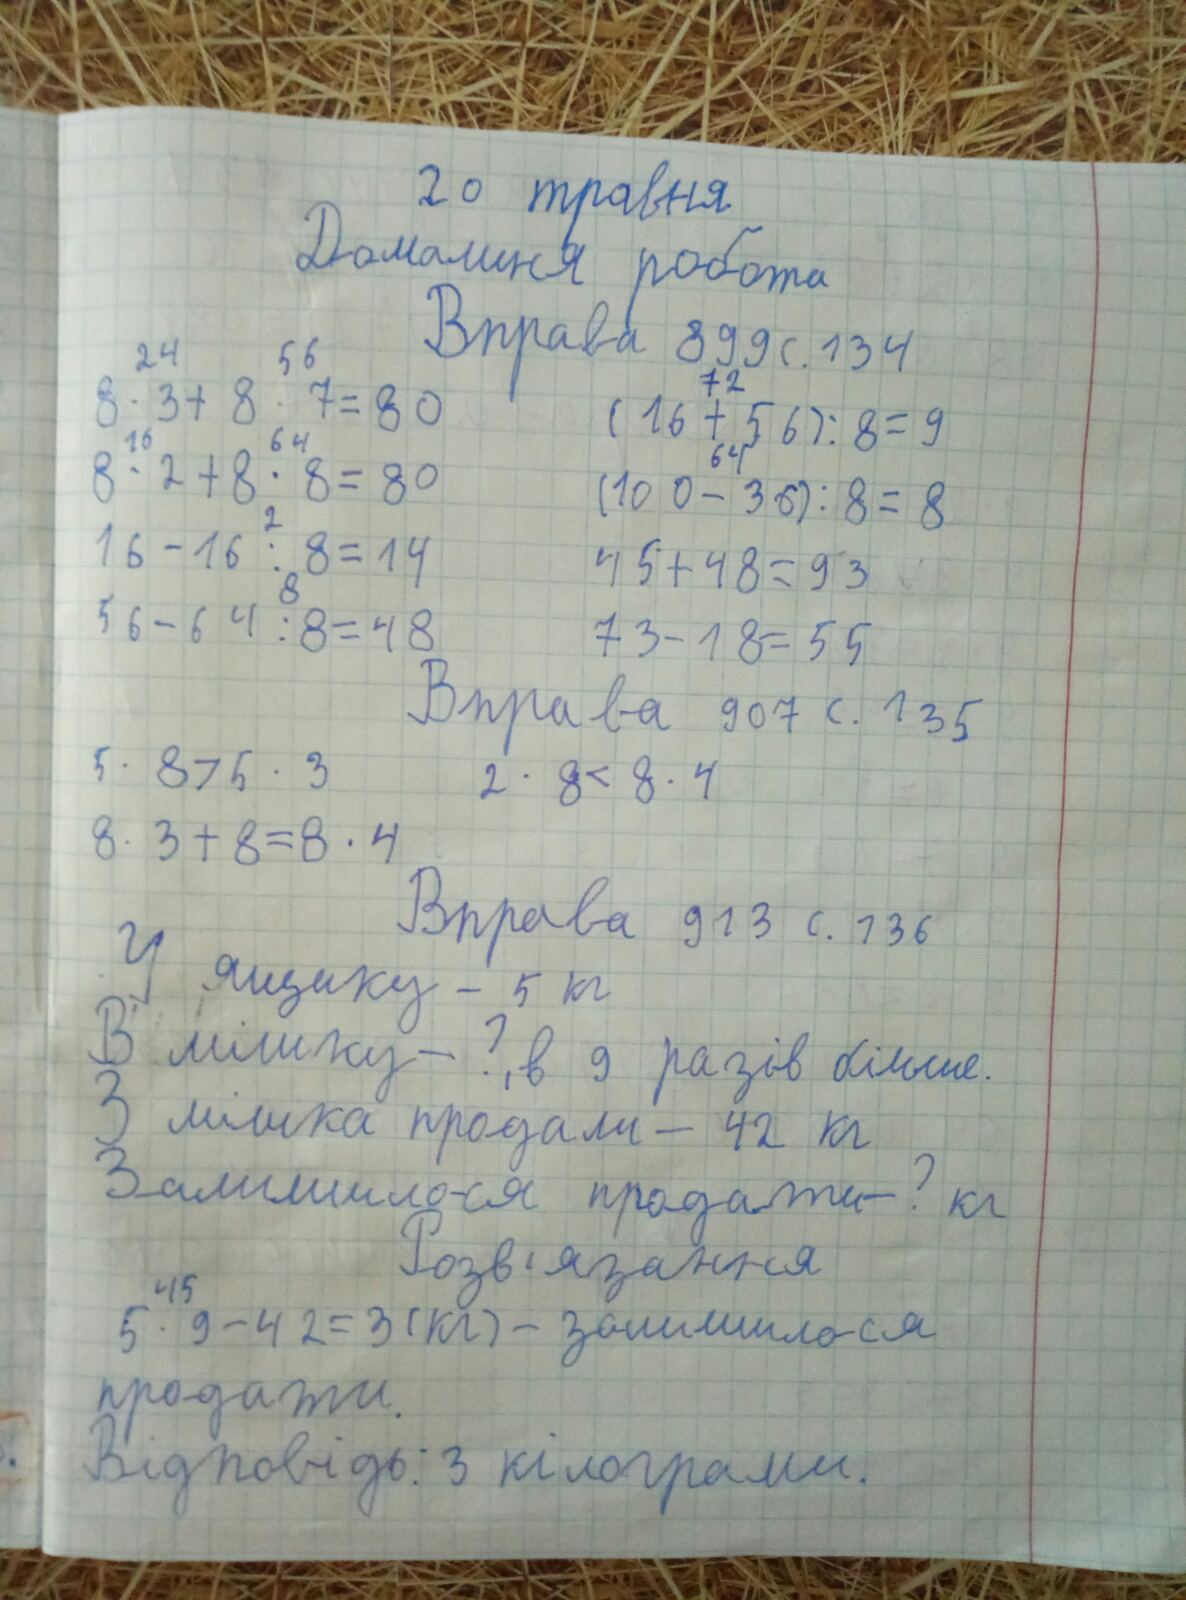 20 травня
Домашня робота
Вправа 899 с. 134
24 56
8 · 3 + 8 · 7 = 80
72
(16 + 56) : 8 = 9
16 64
8 · 2 + 8 · 8 = 80
64
(100 - 36) : 8 = 8
2
16 - 16 : 8 = 14
45 + 48 = 93
8
56 - 64 : 8 = 48
73 - 18 = 55
Вправа 907 с. 135
5 · 8 > 5 · 3
2 · 8 < 8 · 4
8 · 3 + 8 = 8 · 4
Вправа 913 с. 136
У ящику - 5 кг
В мішку - ?, в 9 разів більше.
З мішка продали - 42 кг
Залишилося продати - ? кг
Розв'язання
45
5 · 9 - 42 = 3 (кг) - залишилося
продати.
Відповідь: 3 кілограми.